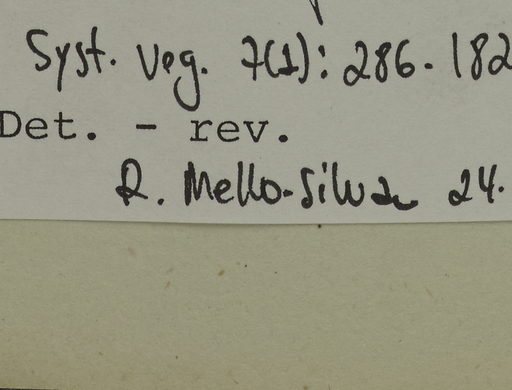 Syst. Veg. 7(1): 286. 182
Det. - rev.
R. Mello-Silva 24.